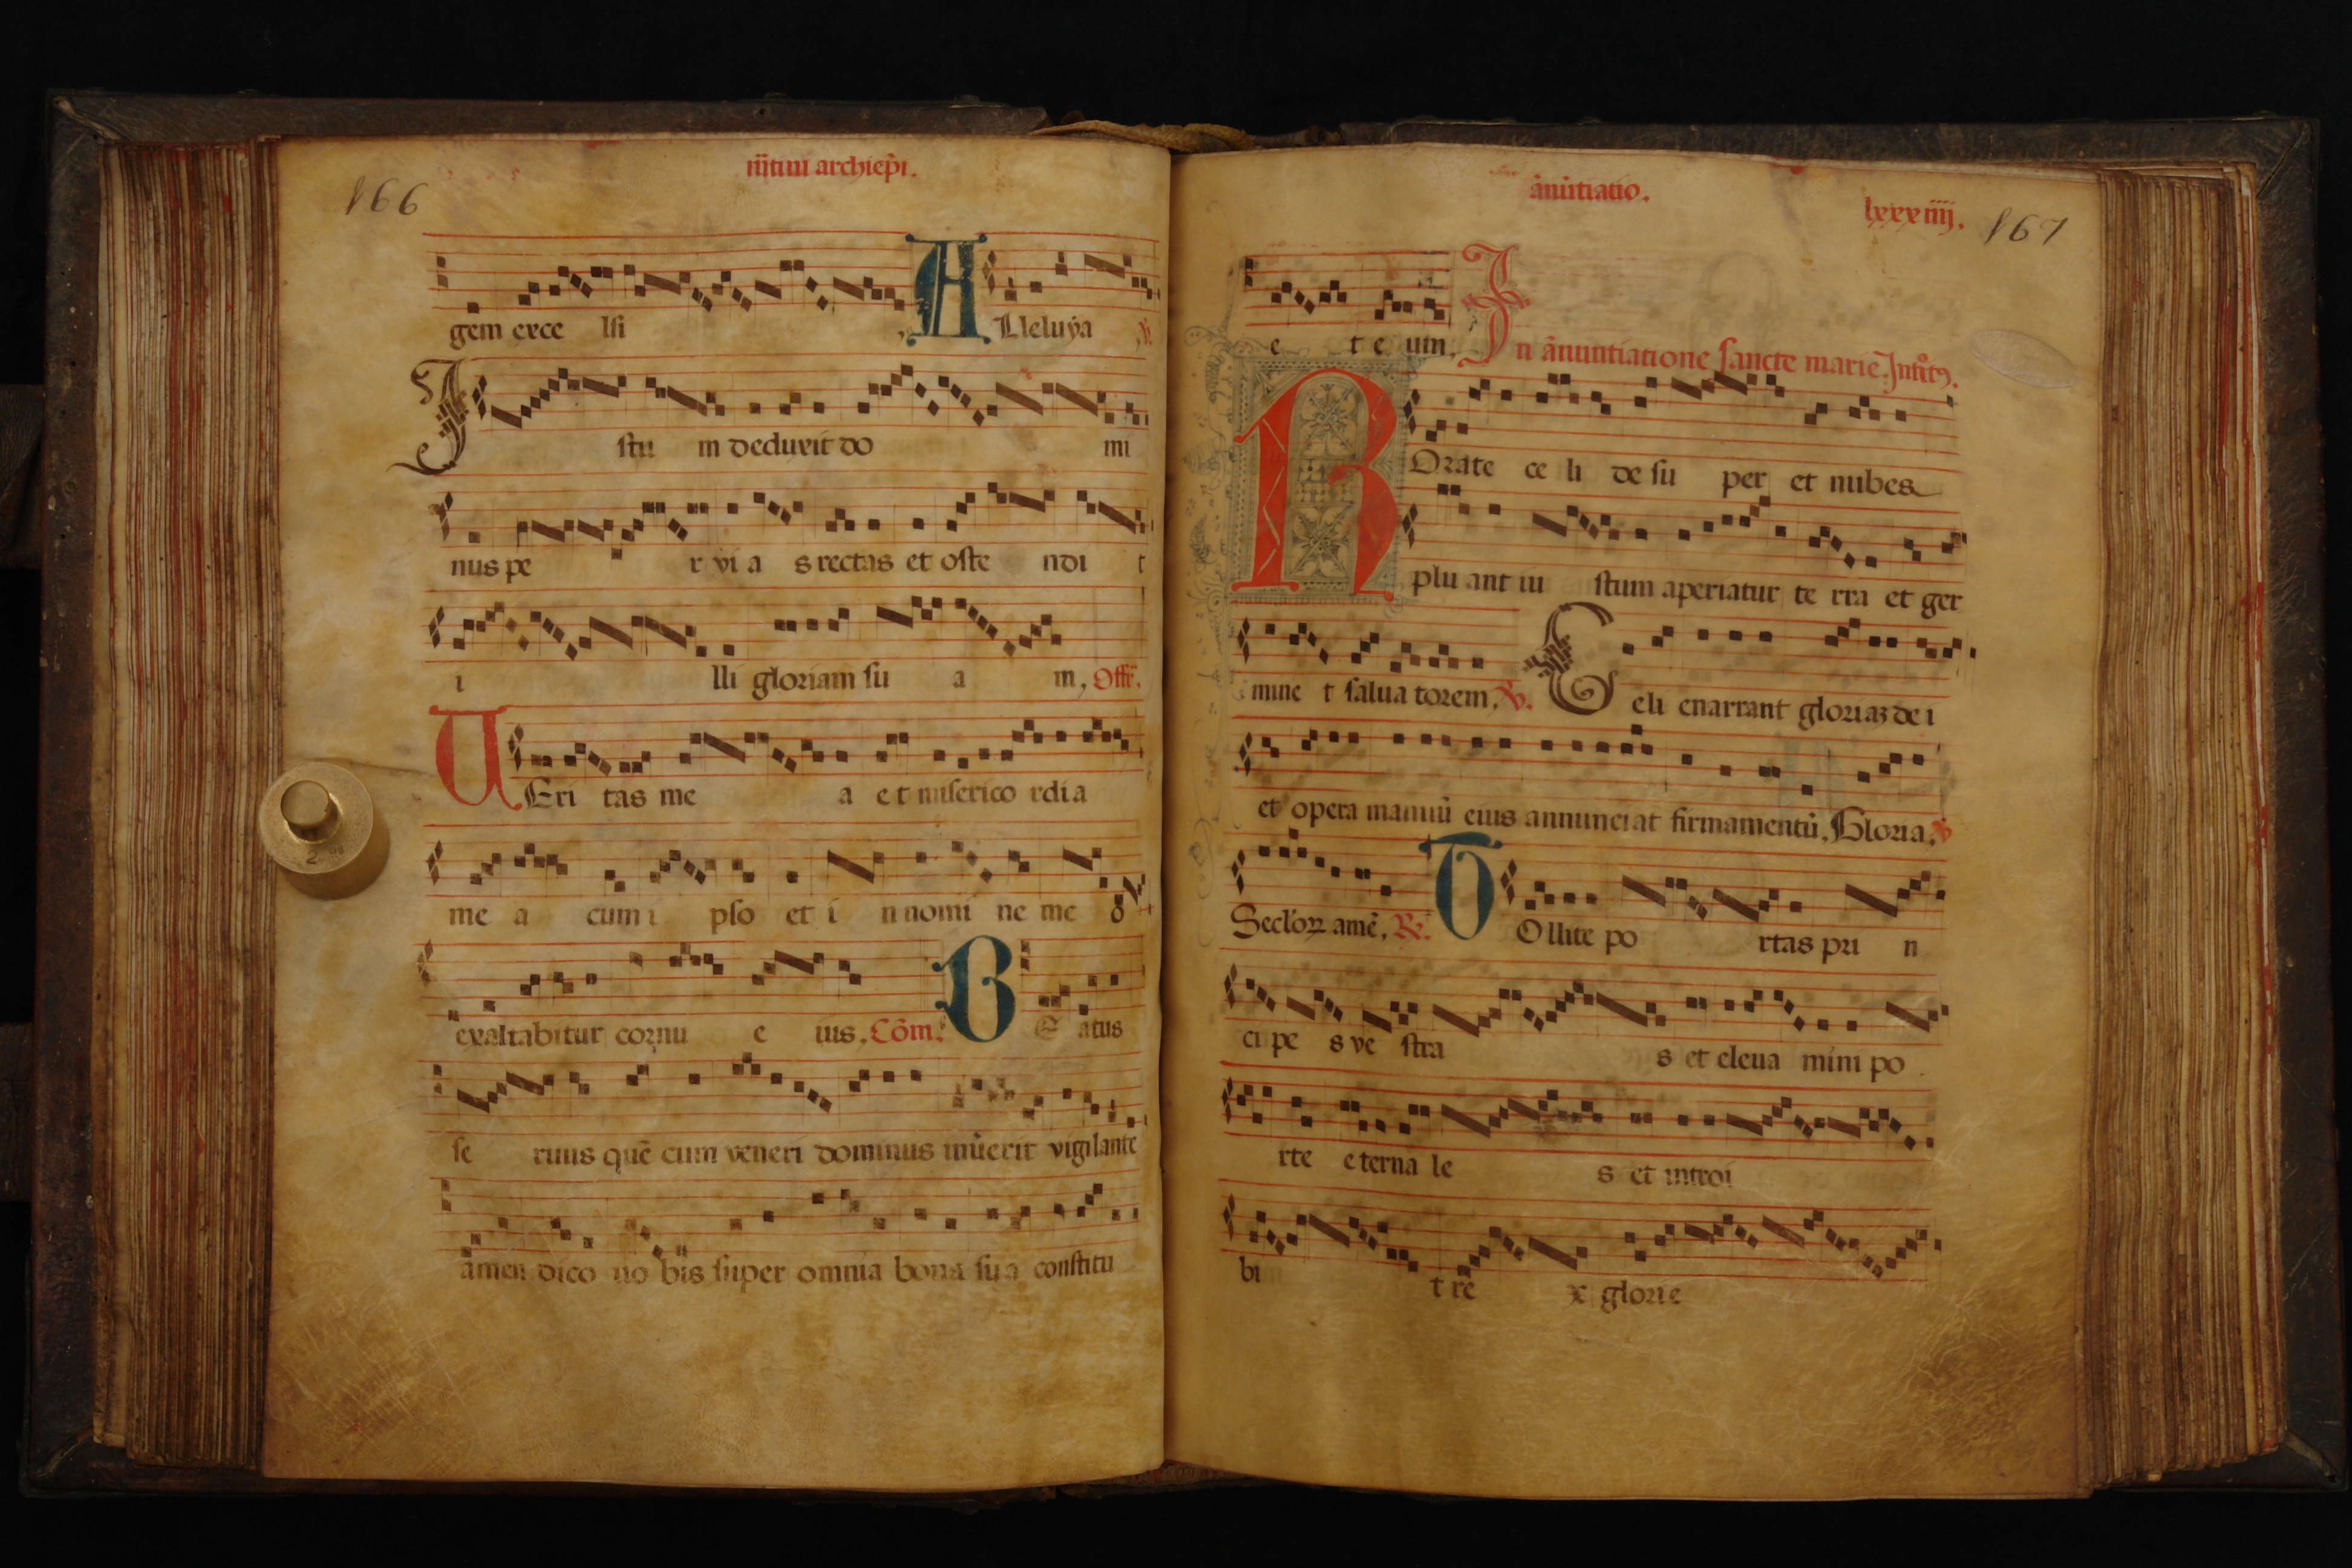 166
m̃tini archiep̃i.
gem exce lsi ALleluÿa ℣.
Justu m deduxit do mi
nus pe r vi a s rectas et oste ndi t
i lli gloriam su a m, Offr̃.
UEri tas me a et miserico rdi a
me a cum i pso et i n nomi ne me o
exaltabitur cornu e ius, Cõm. BE atus
se ruus quẽ cum veneri dominus inũerit vigilante
amen dico uo bis super omnia bona sua constitu
ãnũtiatio.
lxxxiiij. 167
e t e um, In ãnuntiatione sancte marie. Introitꝰ.
ROrate ce li de su per et nubes
plu ant iu stum aperiatur te rra et ger
mine t salua torem, ℣. Celi enarrant gloriaꝫ de i
et opera manuũ eius annunciat firmamentũ, Gloria, ℣
Secl'oꝝ amẽ, ℟. TOllite po rtas pri n
ci pe s ve stra s et eleua mini po
rte eterna le s et introi
bi t re x glorie